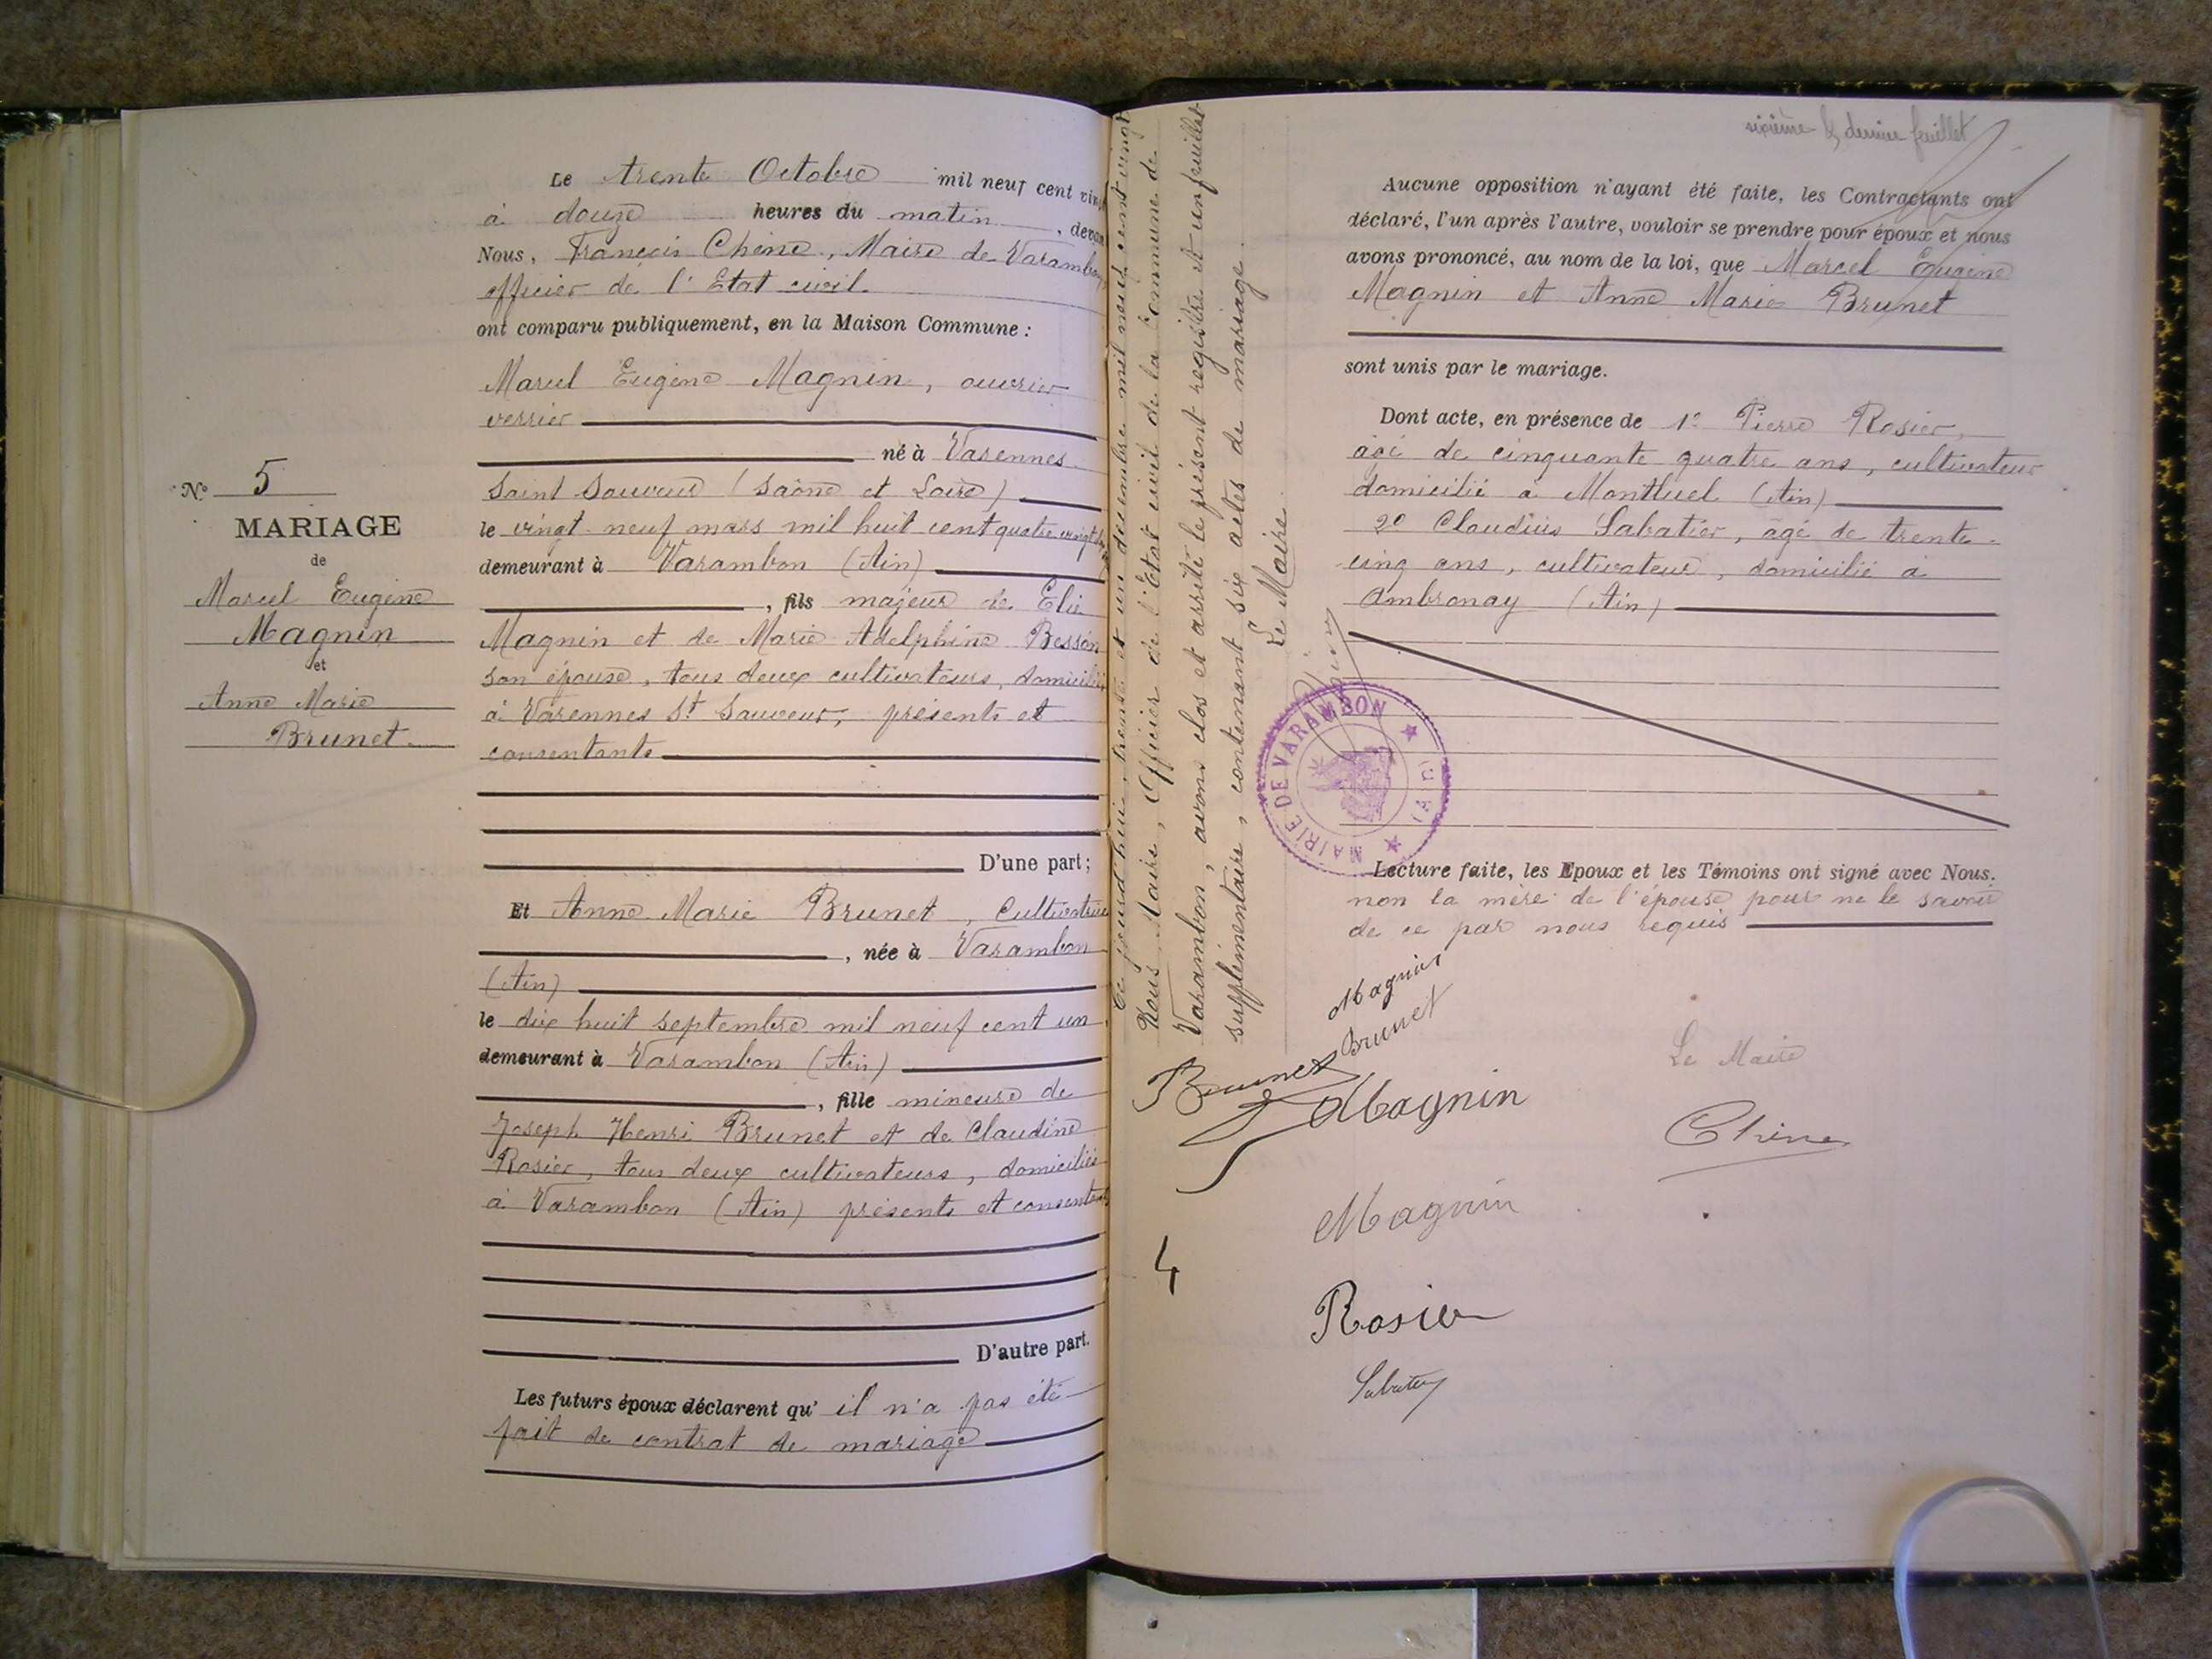 N.º 5
MARIAGE
de
Marcel Eugène
Magnin
et
Anne Marie
Brunet
Le trente Octobre mil neuf cent vingt
à douze heures du matin, devant
Nous, François Chêne, Maire de Varambon
officier de l'Etat civil.
ont comparu publiquement, en la Maison Commune :
Marcel Eugène Magnin, ouvrier
verrier
né à Varennes
Saint Sauveur (Saône et Loire)
le vingt-neuf mars mil huit cent quatre vingt
demeurant à Varambon (Ain)
, fils majeur de Elie
Magnin et de Marie Adelphine Besson
son épouse, tous deux cultivateurs, domiciliés
à Varennes St Sauveur, présents et
consentants
D'une part ;
Et Anne Marie Brunet, Cultivatrice
, née à Varambon
(Ain)
le dix huit septembre mil neuf cent un
demeurant à Varambon (Ain)
, fille mineure de
Joseph Henri Brunet et de Claudine
Rosier, tous deux cultivateurs, domiciliés
à Varambon (Ain) présents et consentants
D'autre part.
Les futurs époux déclarent qu' il n'a pas été
fait de contrat de mariage
Ce jourd'hui, trente et un décembre mil neuf cent vingt
Nous Maire, Officier de l'Etat civil de la Commune de
Varambon, avons clos et arrêté le présent registre et un feuillet
supplémentaire, contenant six actes de mariage.
Le Maire.
MAIRIE DE VARAMBON
(AIN)
sixième & dernier feuillet
Aucune opposition n'ayant été faite, les Contractants ont
déclaré, l'un après l'autre, vouloir se prendre pour époux et nous
avons prononcé, au nom de la loi, que Marcel Eugène
Magnin et Anne Marie Brunet
sont unis par le mariage.
Dont acte, en présence de 1º Pierre Rosier,
âgé de cinquante quatre ans, cultivateur
domicilié à Montluel (Ain)
2º Claudius Sabatier, âgé de trente-
cinq ans, cultivateur, domicilié à
Ambronay (Ain)
Lecture faite, les Epoux et les Témoins ont signé avec Nous.
non la mère de l'épouse pour ne le savoir
de ce par nous requis
Magnin
Brunet
Brunet
Magnin
Le Maire
Chêne
Magnin
4
Rosier
Sabatier